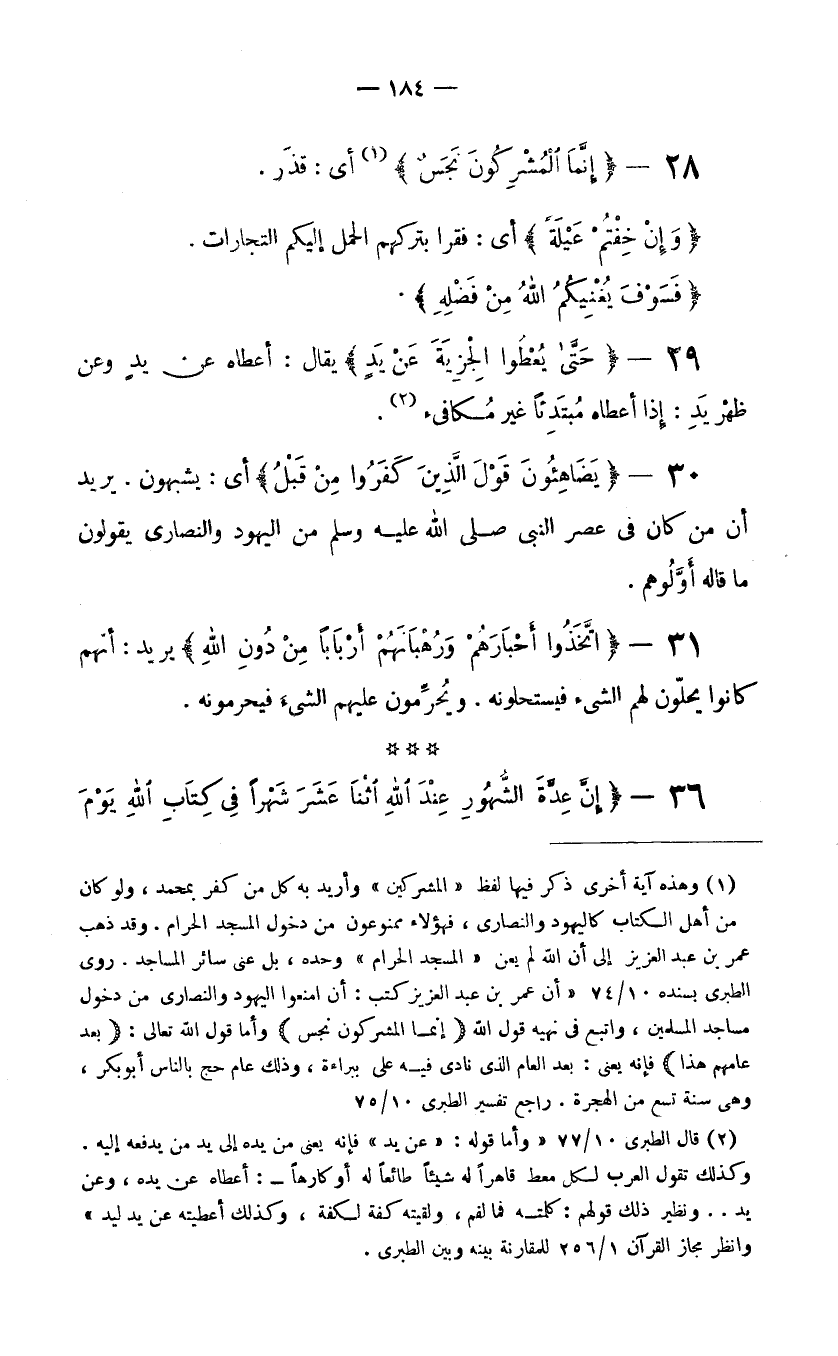 — ١٨٤ —
٢٨ — ﴿ إِنَّمَا ٱلْمُشْرِكُونَ نَجَسٌ ﴾ (١) أى : قذَر .
﴿ وَإِنْ خِفْتُمْ عَيْلَةً ﴾ أى : فقرا بتركهم الحمل إليكم التجارات .
﴿ فَسَوْفَ يُغْنِيكُمُ اللهُ مِنْ فَضْلِهِ ﴾ .
٢٩ — ﴿ حَتَّىٰ يُعْطُوا الْجِزْيَةَ عَنْ يَدٍ ﴾ يقال : أعطاه عن يدٍ وعن
ظهْر يَدٍ : إذا أعطاه مُبتَدِئاً غير مُكافىء (٢) .
٣٠ — ﴿ يَضَاهِئُونَ قَوْلَ الَّذِينَ كَفَرُوا مِنْ قَبْلُ ﴾ أى : يشبهون . يريد
أن من كان فى عصر النبى صلى الله عليه وسلم من اليهود والنصارى يقولون
ما قاله أَوَّلُوهم .
٣١ — ﴿ اتَّخَذُوا أَحْبَارَهُمْ وَرُهْبَانَهُمْ أَرْبَاباً مِنْ دُونِ اللهِ ﴾ يريد : أنّهم
كانوا يحلّون لهم الشىء فيستحلونه . ويُحرِّمون عليهم الشىءَ فيحرمونه .
***
٣٦ — ﴿ إِنَّ عِدَّةَ الشُّهُورِ عِنْدَ ٱللهِ ٱثْنَا عَشَرَ شَهْراً فِي كِتَابِ ٱللهِ يَوْمَ
(١) وهذه آية أخرى ذكر فيها لفظ « المشركين » وأريد به كل من كفر بمحمد ، ولو كان
من أهل الكتاب كاليهود والنصارى ، فهؤلاء ممنوعون من دخول المسجد الحرام . وقد ذهب
عمر بن عبد العزيز إلى أن الله لم يعن « المسجد الحرام » وحده ، بل عنى سائر المساجد . روى
الطبرى بسنده ٧٤/١٠ « أن عمر بن عبد العزيز كتب : أن امنعوا اليهود والنصارى من دخول
مساجد المسلمين ، واتبع فى نهيه قول الله ﴿ إنما المشركون نجس ﴾ وأما قول الله تعالى : ﴿ بعد
عامهم هذا ﴾ فإنه يعنى : بعد العام الذى نادى فيه على ببراءة ، وذلك عام حج بالناس أبوبكر ،
وهى سنة تسع من الهجرة . راجع تفسير الطبرى ٧٥/١٠
(٢) قال الطبرى ٧٧/١٠ « وأما قوله : « عن يد » فإنه يعنى من يده إلى يد من يدفعه إليه .
وكذلك تقول العرب لكل معط قاهراً له شيئاً طائعاً له أو كارهاً — : أعطاه عن يده ، وعن
يد . . ونظير ذلك قولهم : كلمته فما لفم ، ولقيته كفة لكفة ، وكذلك أعطيته عن يد ليد »
وانظر مجاز القرآن ٢٥٦/١ للمقارنة بينه وبين الطبرى .